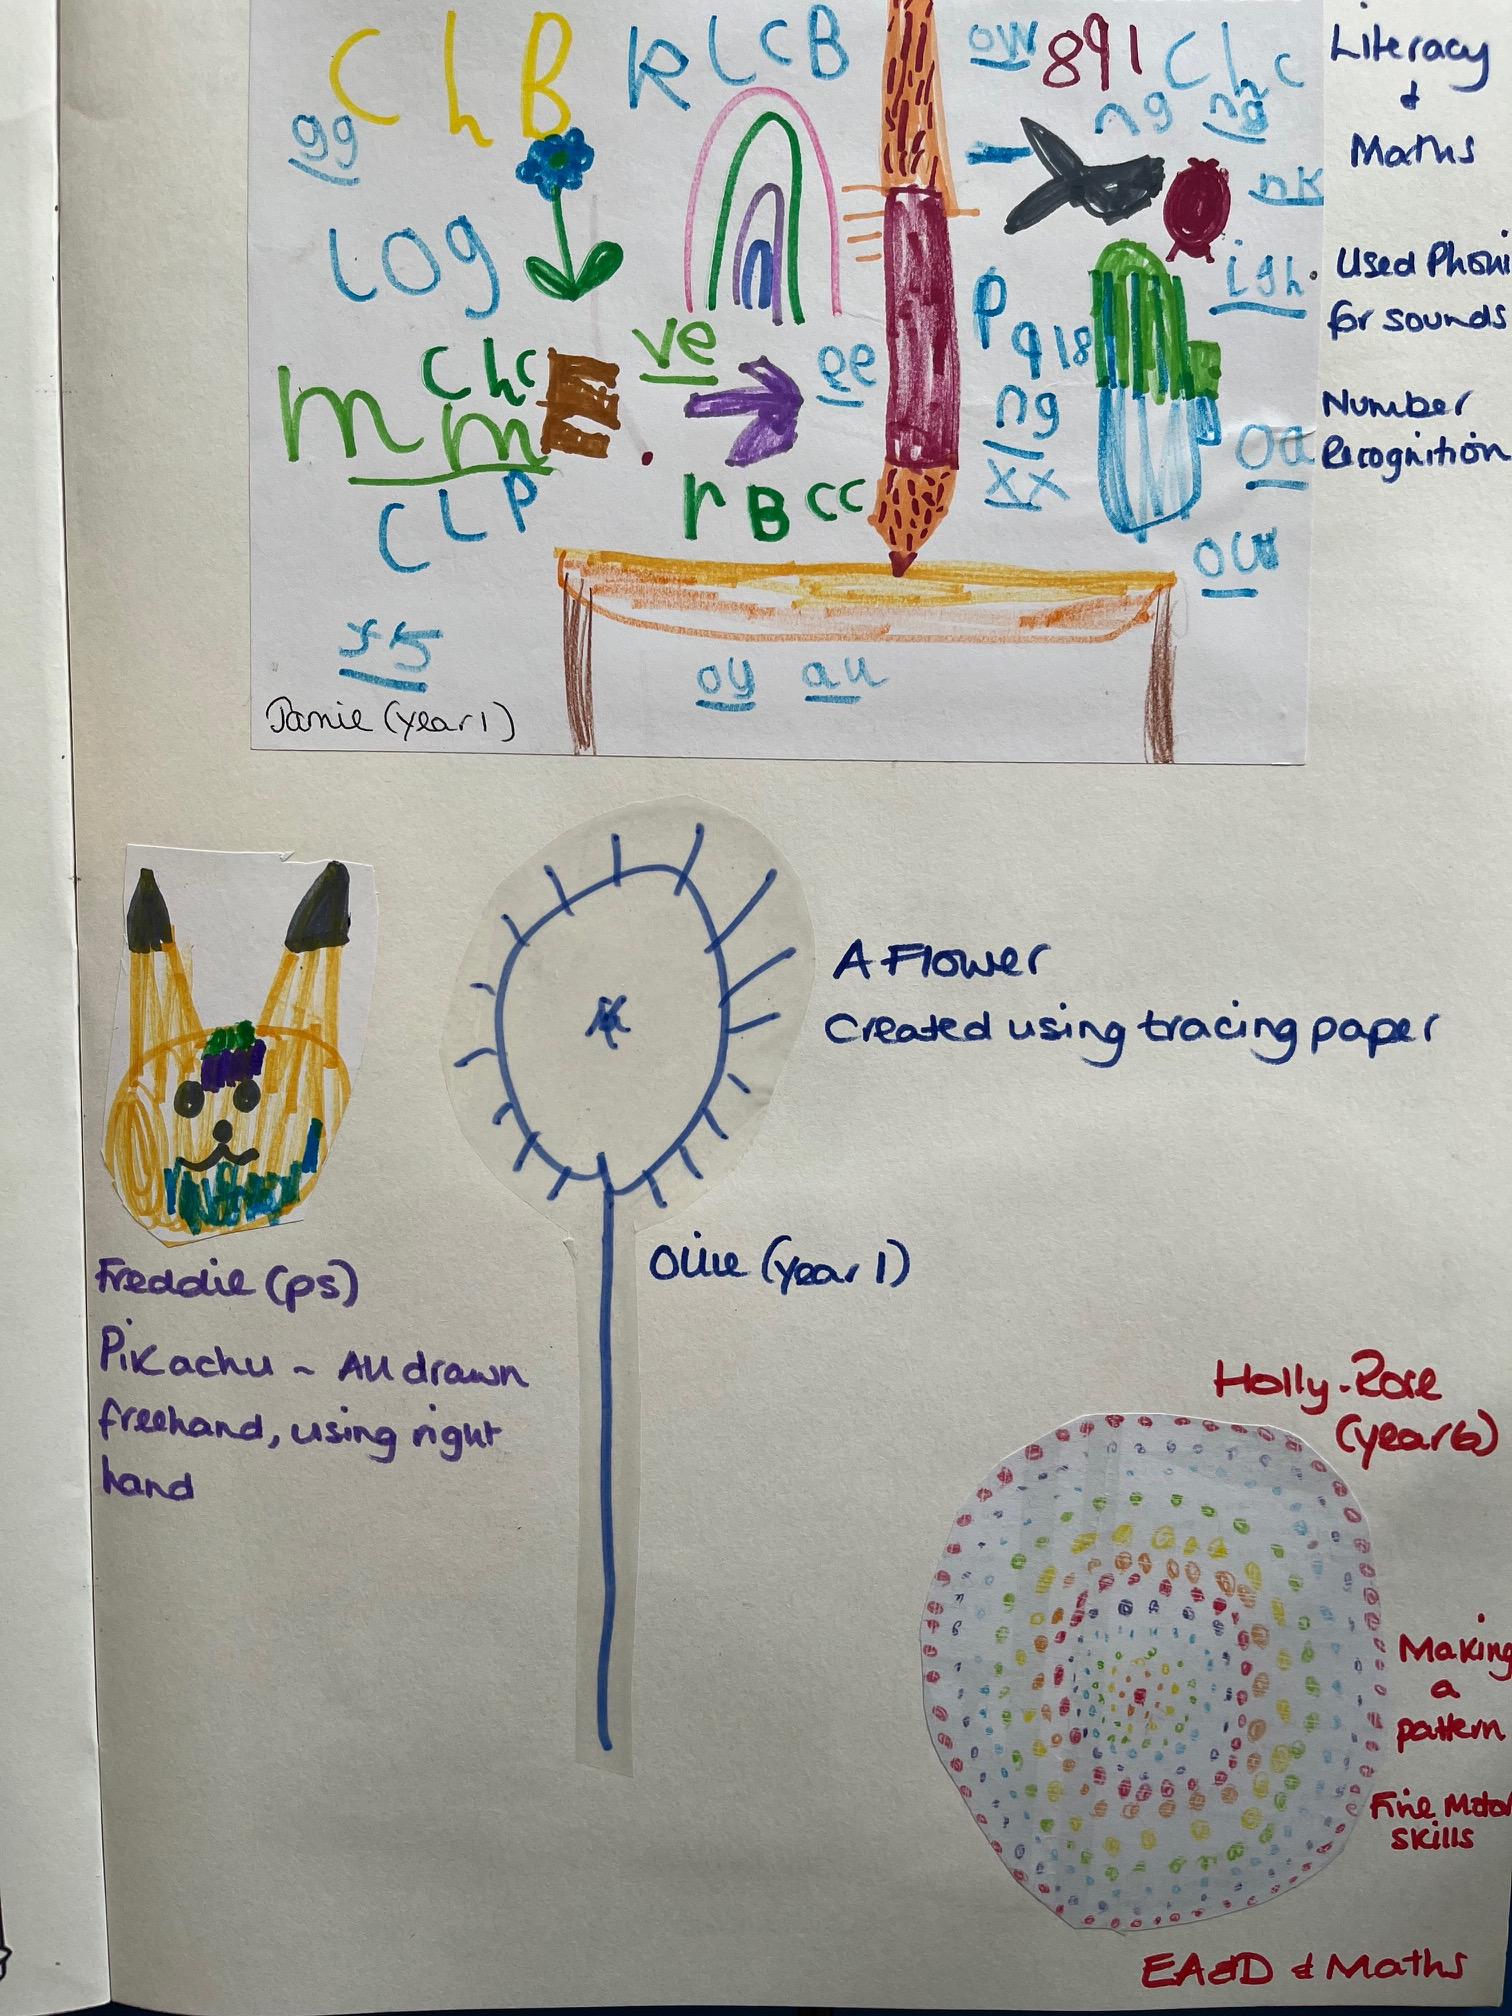 C h B
K L C B
ow
891
C h c
Literacy
&
Maths
gg
ng
ng
nk
log
igh
Used Phoni
for sounds
ve
ee
P
q 18
C h c
m m
ng
oa
Number
Recognition
xx
C L P
r B c c
ou
oy
au
Jamie (year 1)
A Flower
Created using tracing paper
Ollie (year 1)
Freddie (ps)
Pikachu ~ All drawn
freehand, using right
hand
Holly-Rose
(year 6)
Making
a
pattern
Fine Motor
skills
EA&D & Maths